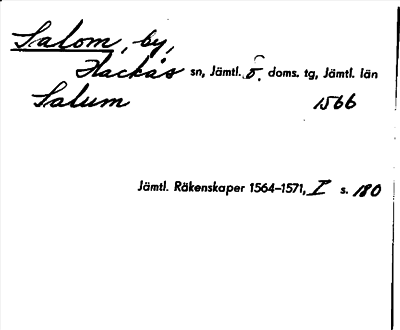 Salom, by,
Hackås sn, Jämtl. ö. doms. tg, Jämtl. län
Salum 1566
Jämtl. Räkenskaper 1564–1571, I s. 180